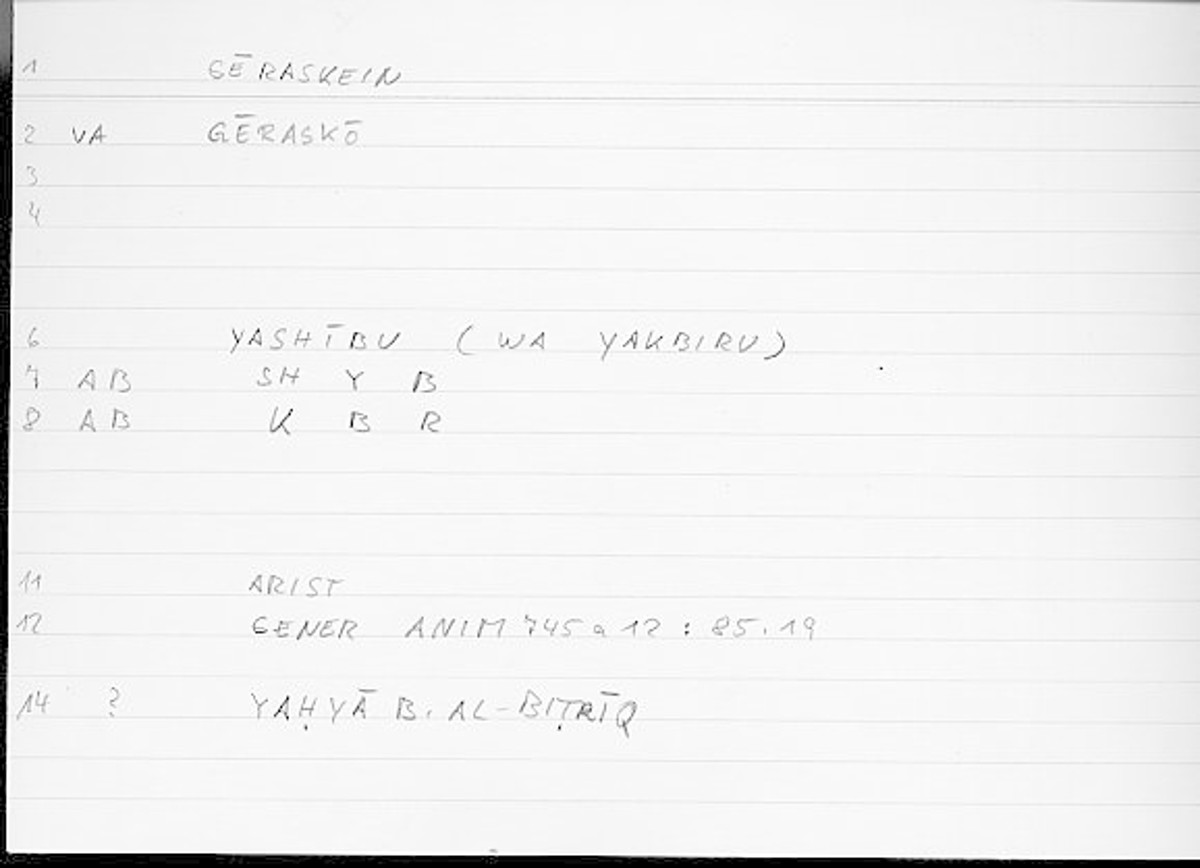 1 GĒRASKEIN
2 VA GĒRASKŌ
3
4
6 YASHĪBU (WA YAKBIRU)
7 AB SH Y B
8 AB K B R
11 ARIST
12 GENER ANIM 745a12 : 85.19
14 ? YAḤYĀ B. AL-BIṬRĪQ